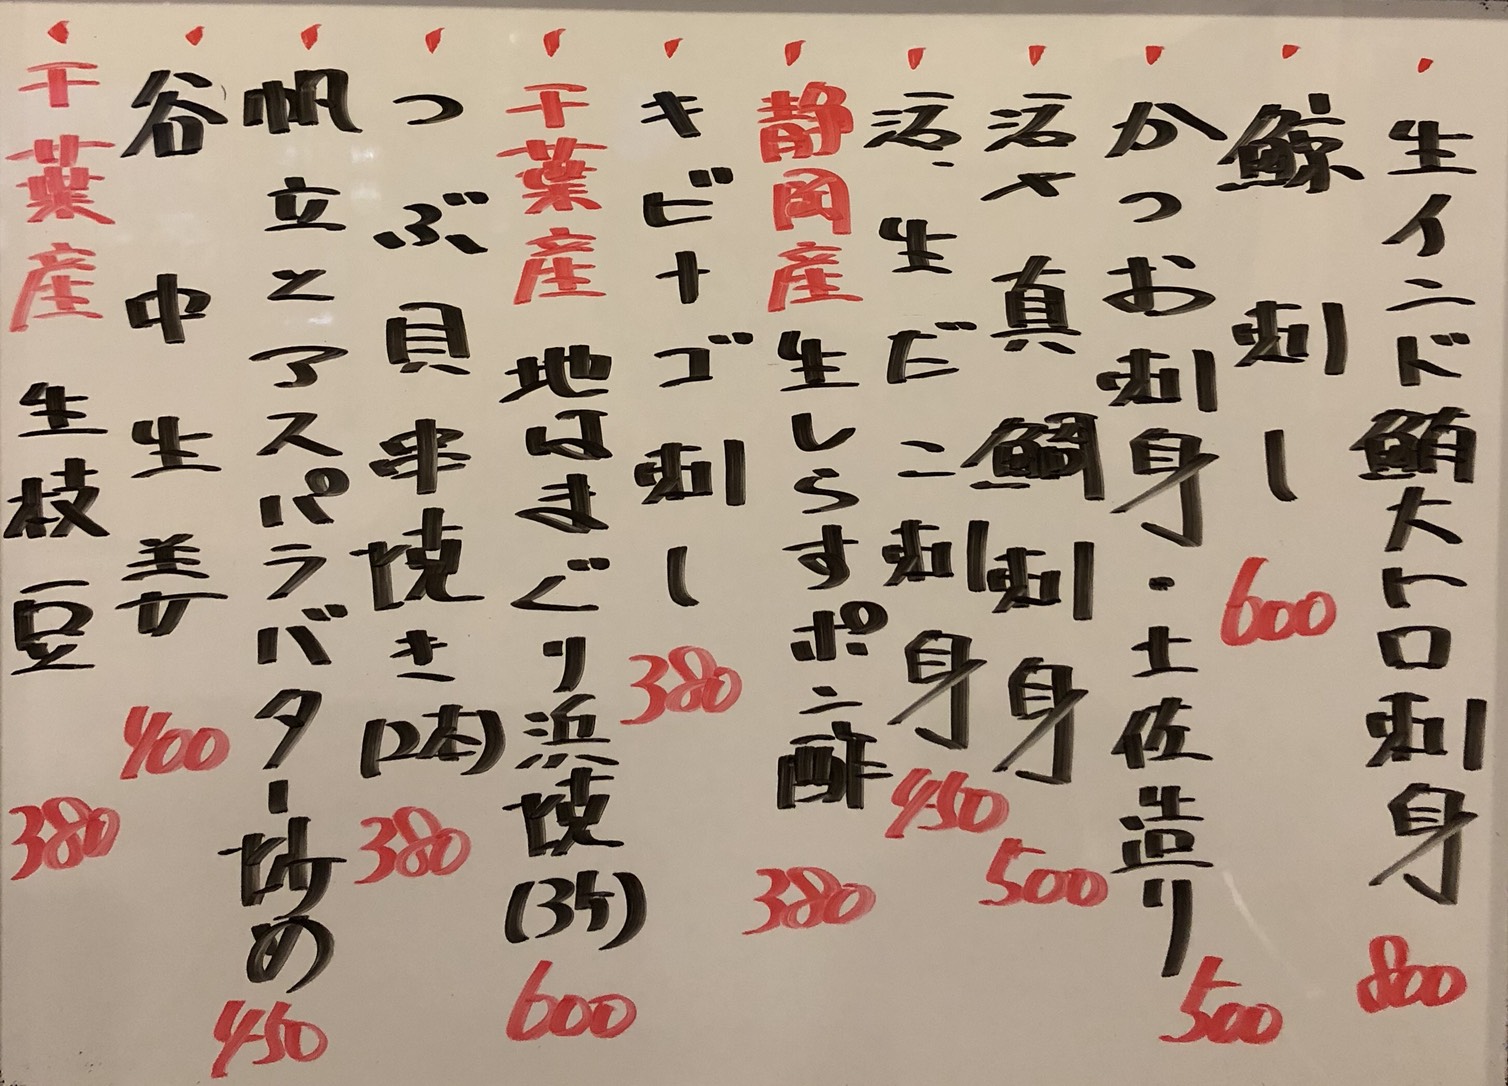 生インド鮪大トロ刺身 800
鯨刺し 600
かつお刺身・土佐造り 500
活〆真鯛刺身 500
活生だこ刺身 450
静岡産生しらすポン酢 380
キビナゴ刺し 380
千葉産地はまぐり浜焼(3ケ) 600
つぶ貝串焼き(2本) 380
帆立とアスパラバター炒め 450
谷中生姜 400
千葉産生枝豆 380